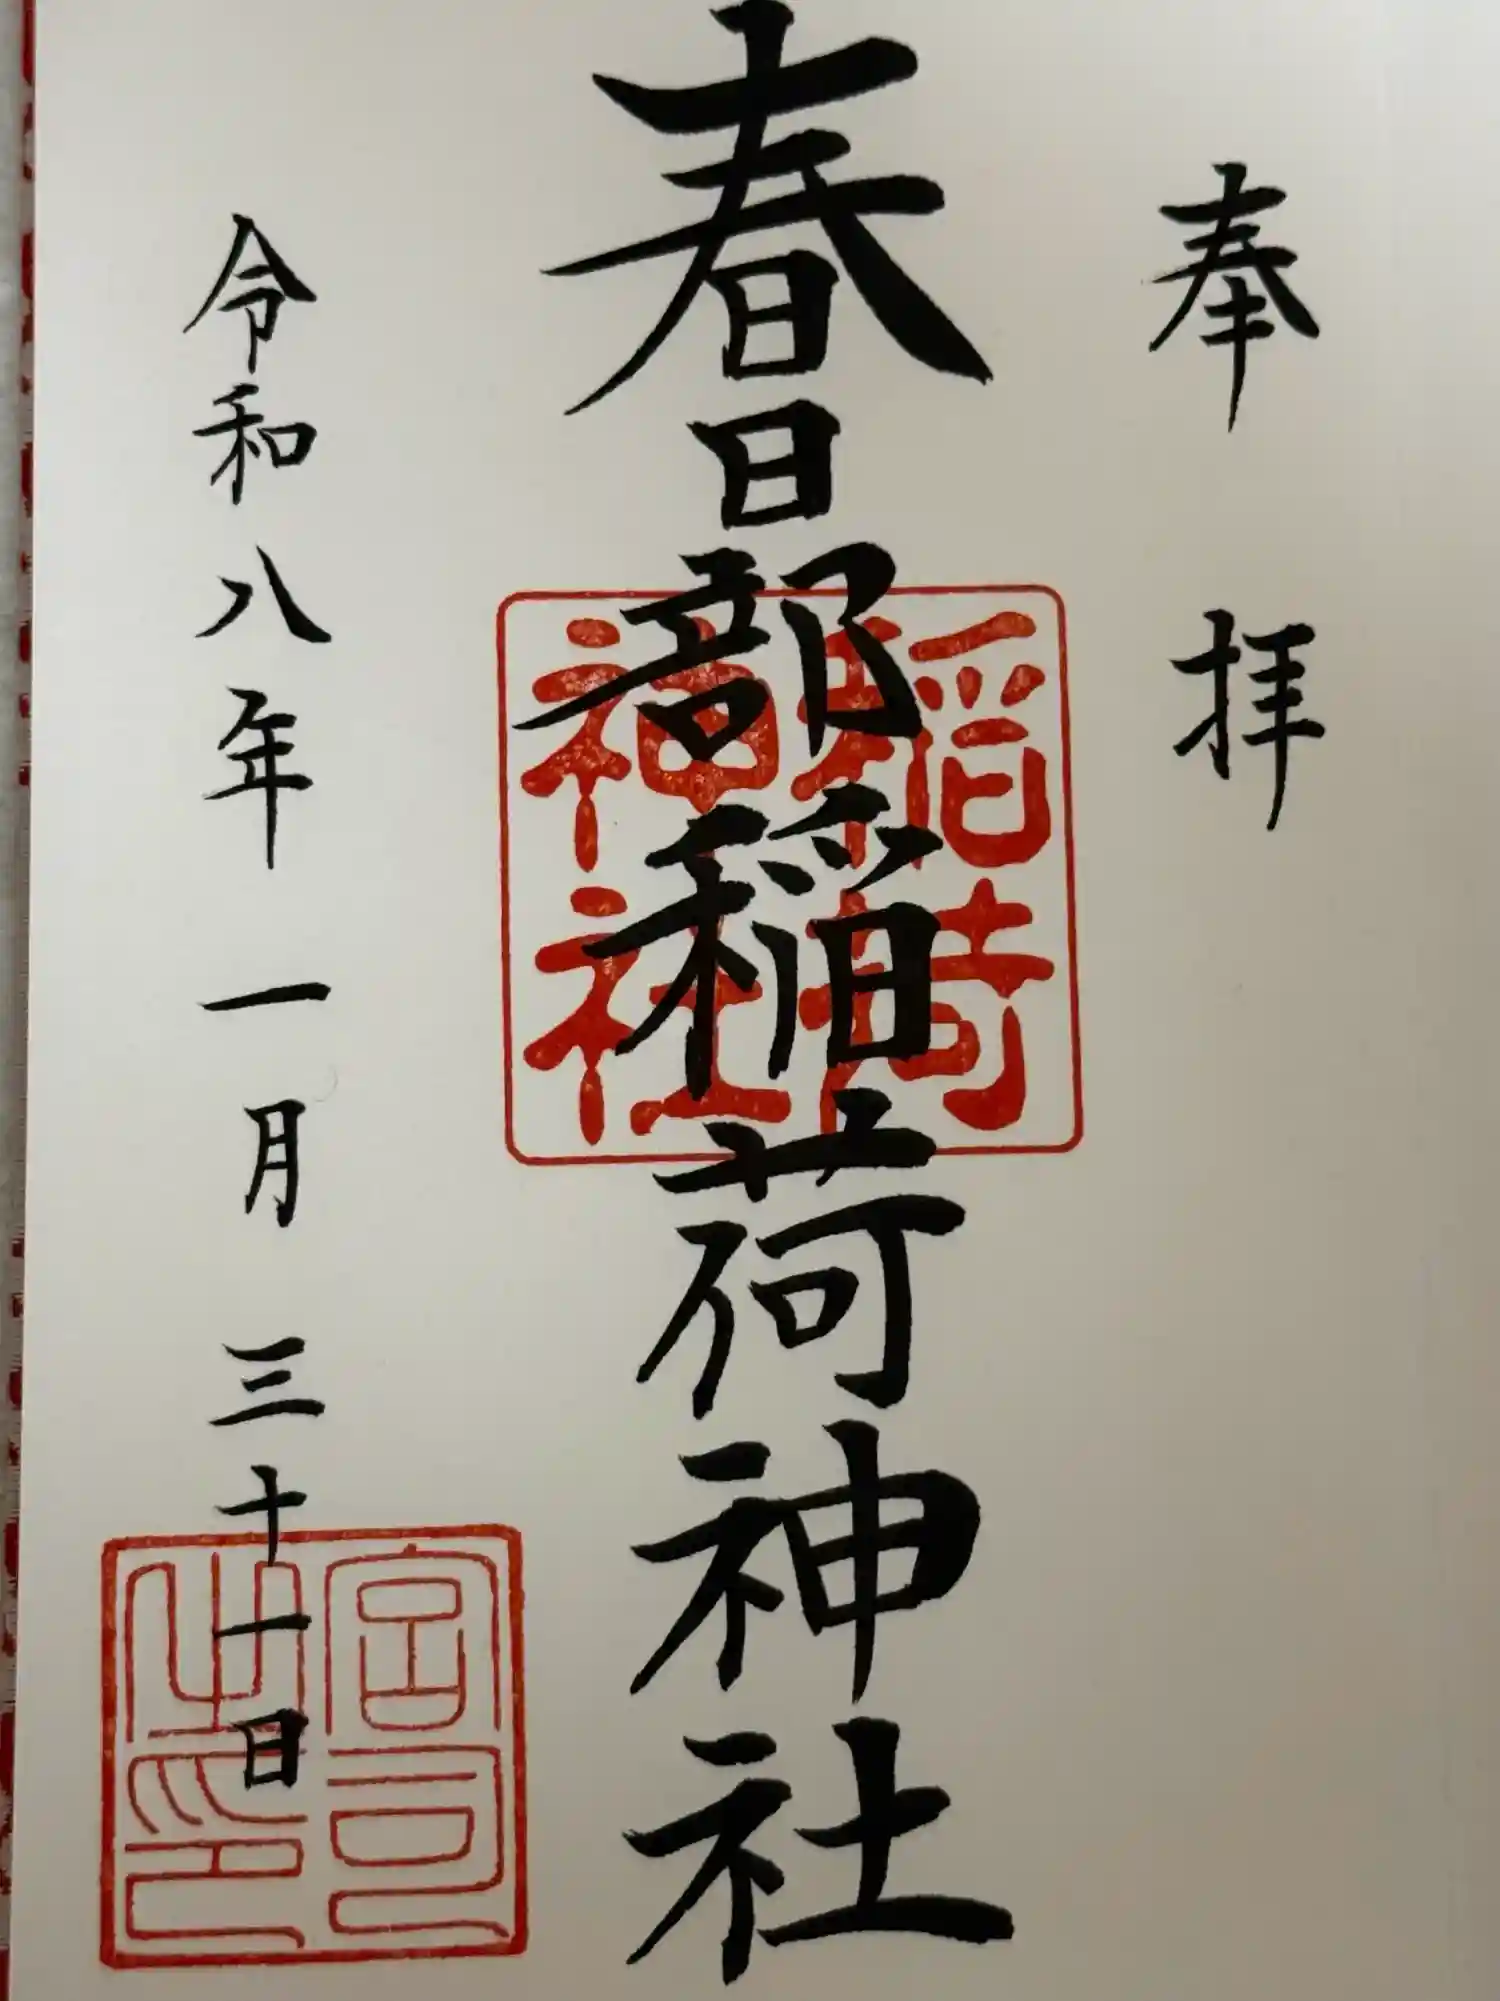 奉拝
春日部稲荷神社
稲荷
神社
令和八年一月三十一日
宮司
之印